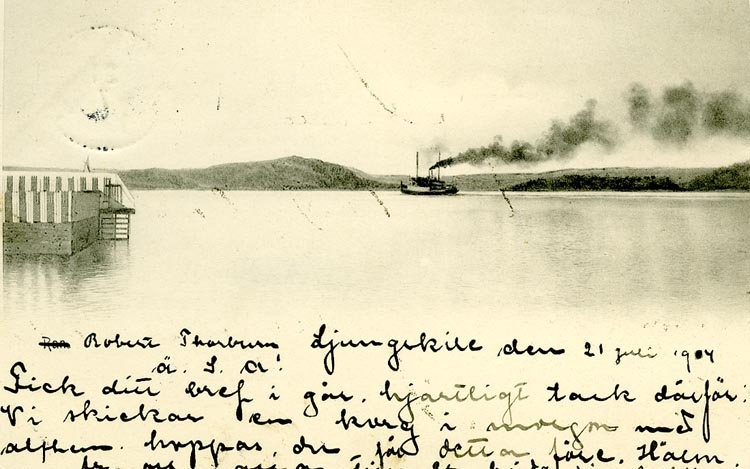 Robert Thorburn Ljungskile den 21 juli 1904
ä. S. a!
Fick ditt bref i går, hjärtligt tack därför.
Vi skickar en korg i morgon med
hoppas, du får detta före.